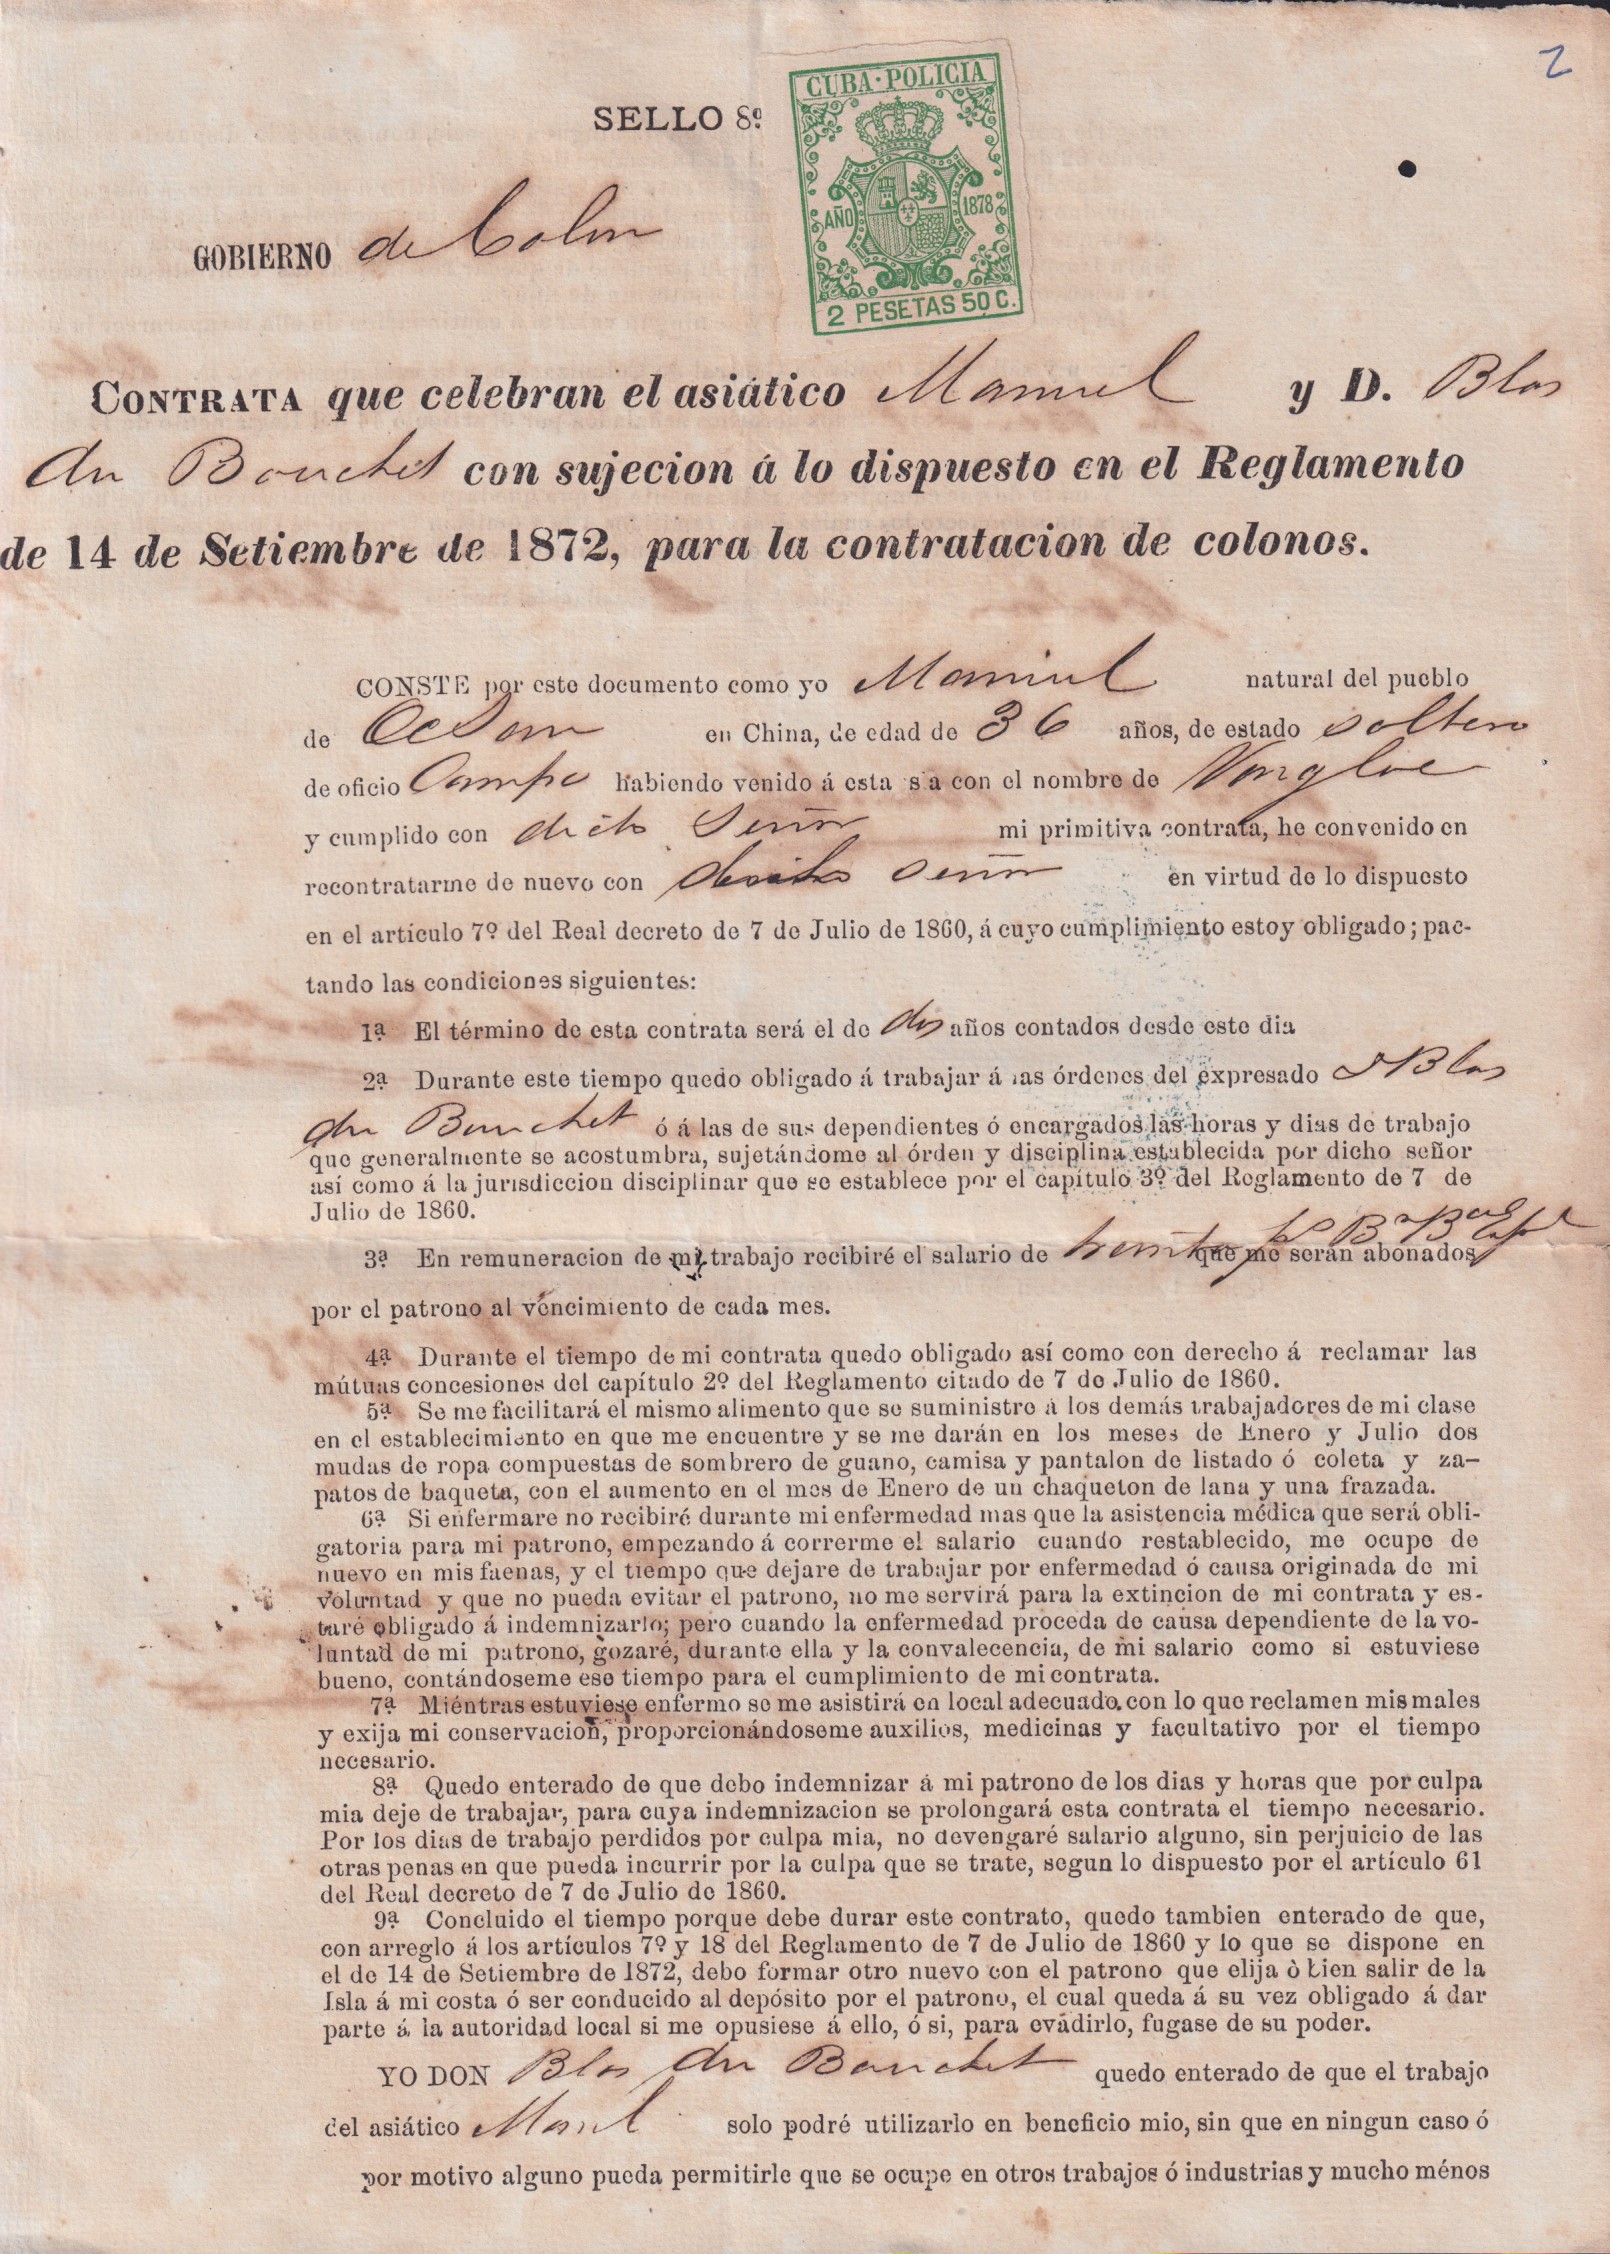 2
SELLO 8º
CUBA·POLICIA
AÑO 1878
2 PESETAS 50 C.
GOBIERNO de Colon
CONTRATA que celebran el asiático Manuel y D. Blas
du Bouchet con sujecion á lo dispuesto en el Reglamento
de 14 de Setiembre de 1872, para la contratacion de colonos.
CONSTE por este documento como yo Manuel natural del pueblo
de en China, de edad de 36 años, de estado soltero
de oficio Campo habiendo venido á esta s a con el nombre de
y cumplido con dicho Señor mi primitiva contrata, he convenido en
recontratarme de nuevo con dicho Señor en virtud de lo dispuesto
en el artículo 7º del Real decreto de 7 de Julio de 1860, á cuyo cumplimiento estoy obligado; pac-
tando las condiciones siguientes:
1ª El término de esta contrata será el de dos años contados desde este dia
2ª Durante este tiempo quedo obligado á trabajar á las órdenes del expresado D Blas
du Bouchet ó á las de sus dependientes ó encargados las horas y dias de trabajo
que generalmente se acostumbra, sujetándome al órden y disciplina establecida por dicho señor
así como á la jurisdiccion disciplinar que se establece por el capítulo 3º del Reglamento de 7 de
Julio de 1860.
3ª En remuneracion de mi trabajo recibiré el salario de que me serán abonados
por el patrono al vencimiento de cada mes.
4ª Durante el tiempo de mi contrata quedo obligado así como con derecho á reclamar las
mútuas concesiones del capítulo 2º del Reglamento citado de 7 de Julio de 1860.
5ª Se me facilitará el mismo alimento que se suministre á los demás trabajadores de mi clase
en el establecimiento en que me encuentre y se me darán en los meses de Enero y Julio dos
mudas de ropa compuestas de sombrero de guano, camisa y pantalon de listado ó coleta y za-
patos de baqueta, con el aumento en el mes de Enero de un chaqueton de lana y una frazada.
6ª Si enfermare no recibiré durante mi enfermedad mas que la asistencia médica que será obli-
gatoria para mi patrono, empezando á correrme el salario cuando restablecido, me ocupe de
nuevo en mis faenas, y el tiempo que dejare de trabajar por enfermedad ó causa originada de mi
voluntad y que no pueda evitar el patrono, no me servirá para la extincion de mi contrata y es-
taré obligado á indemnizarlo; pero cuando la enfermedad proceda de causa dependiente de la vo-
luntad de mi patrono, gozaré, durante ella y la convalecencia, de mi salario como si estuviese
bueno, contándoseme ese tiempo para el cumplimiento de mi contrata.
7ª Miéntras estuviese enfermo se me asistirá en local adecuado, con lo que reclamen mis males
y exija mi conservacion, proporcionándoseme auxilios, medicinas y facultativo por el tiempo
necesario.
8ª Quedo enterado de que debo indemnizar á mi patrono de los dias y horas que por culpa
mia deje de trabajar, para cuya indemnizacion se prolongará esta contrata el tiempo necesario.
Por los dias de trabajo perdidos por culpa mia, no devengaré salario alguno, sin perjuicio de las
otras penas en que pueda incurrir por la culpa que se trate, segun lo dispuesto por el artículo 61
del Real decreto de 7 de Julio de 1860.
9ª Concluido el tiempo porque debe durar este contrato, quedo tambien enterado de que,
con arreglo á los artículos 7º y 18 del Reglamento de 7 de Julio de 1860 y lo que se dispone en
el de 14 de Setiembre de 1872, debo formar otro nuevo con el patrono que elija ò bien salir de la
Isla á mi costa ó ser conducido al depósito por el patrono, el cual queda á su vez obligado á dar
parte á la autoridad local si me opusiese á ello, ó si, para evadirlo, fugase de su poder.
YO DON Blas du Bouchet quedo enterado de que el trabajo
del asiático Manl solo podré utilizarlo en beneficio mio, sin que en ningun caso ó
por motivo alguno pueda permitirle que se ocupe en otros trabajos ó industrias y mucho ménos